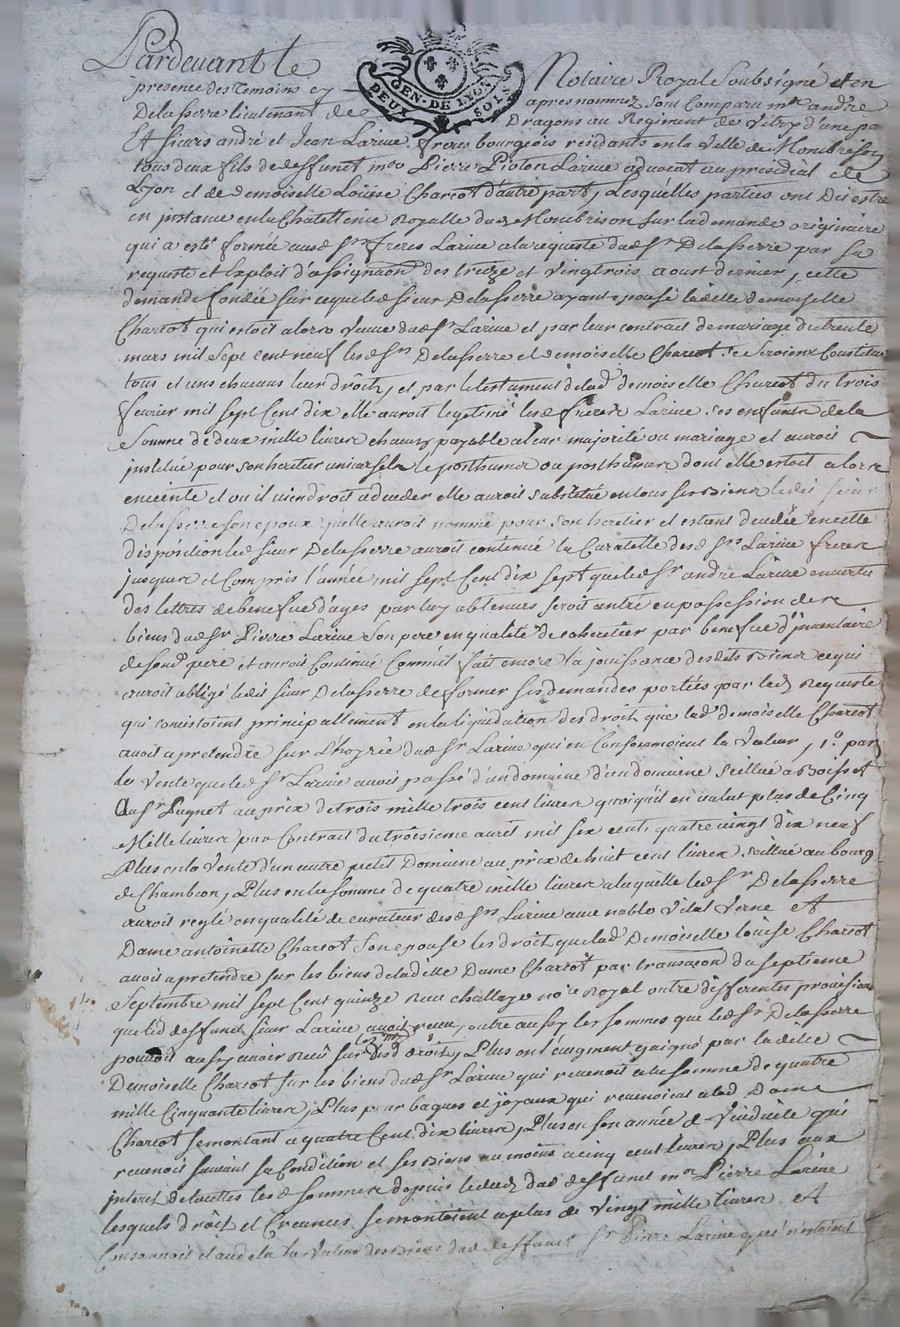 Pardevant le Notaire Royal Soubsigné et en
GEN. DE LYON
DEUX SOLS
presence des temoins cy apres nommez sont Comparu mre andré
Delasserre lieutenant de Dragons au Regiment de Vitry d'une pa
Et sieurs andré et Jean Larive freres bourgeois residants en la Ville de Monbrison
tous deux fils de deffunt mre Pierre Larive advocat au presidial de
Lyon et de demoiselle Louise Charcot d'autre part, Lesquelles parties ont dit estre
en instance en la Chatellenie Royalle de Monbrison sur la demande originaire
qui a esté formée aud srs freres Larive a la requeste dud sr Delasserre par sa
requeste et Exploit d'assignaon des treize et vingtrois aoust dernier, cette
demande fondée sur ce que led sieur Delasserre ayant epousé ladite demoiselle
Charcot qui estoit alors veuve dud sr Larive et par leur contract de mariage du trente
mars mil sept cent neuf lesd srs Delasserre et demoiselle Charcot se seroient Constitué
tous et uns chacuns leur droits, et par le testament de lad demoiselle Charcot du trois
fevrier mil sept Cent dix elle auroit legitimé lesd freres Larive ses enfants de la
Somme de deux mille livres chacun payable a leur majorité ou mariage et auroit
institué pour son heritier universel le posthume ou posthumes dont elle estoit alors
enceinte et ou il viendroit a deceder elle auroit substitué en tous ses biens ledit sieur
Delasserre son epoux qu'elle auroit nommé pour son heritier et estant decedée en cette
disposition led sieur Delasserre auroit continué la Curatelle desd srs Larive freres
jusques et Compris l'année mil sept Cent dix sept que led sr andré Larive en vertu
des lettres de benefice d'ages par luy obtenues seroit entré en possession des
biens dud sr Pierre Larive son pere en qualité de coheritier par benefice d'inventaire
de sond pere et auroit Continué Comme il fait encore la jouissance desdits biens ce qui
auroit obligé ledit sieur Delasserre de former ses demandes portées par lad Requeste
qui consistoient principallement en la liquidation des droits que lad demoiselle Charcot
avoit a pretendre sur L'hoyrie dud sr Larive qui en Conformoient la Valeur, 1o. par
la Vente que led sr Larive avoit passé d'un domaine d'un domaine scittué a Boisset
Au sr Pugnet au prix de trois mille trois cent livres quoiqu'il en valut plus de Cinq
Mille livres par Contrait du troisieme avril mil six cents quatre vingt dix neuf
Plus en la Vente d'un autre petit Domaine au prix de huit cent livres scittué au bourg
de Chambeon, Plus en la somme de quatre mille livres a laquelle led sr Delasserre
auroit reglé en qualité de curateur desd srs Larive avec noble Vital Verne Et
Dame antoinette Charcot Son epouse les droits que lad Demoiselle loüise Charcot
avoit a pretendre sur les biens de ladite Dame Charcot par transaction du septieme
Septembre mil sept Cent quinze Reçu Challaye nore Royal outre differentes provisions
que led deffunt sieur Larive avoit receu, outre aussy les sommes que led sr Delasserre
pouvoit aussy avoir Reçu sur lesd droits, Plus en l'augment gaigné par ladite
Demoiselle Charcot sur les biens dud sr Larive qui revenoit a la somme de quatre
mille Cinquante livres, Plus pour bagues et joyaux qui revenoient a lad Dame
Charcot se montant a quatre Cent dix livres, Plus en son année de Viduité qui
revenoit suivant sa Condition et ses biens au moins a cinq cent livres, Plus aux
interet de touttes lesd sommes depuis le decez dud deffunt mre Pierre Larive
lesquels droits et Creances se montoient a plus de vingt mille livres Et
Consommoit et audela la Valeur des biens dud deffunt sr Pierre Larive qui n'estoient